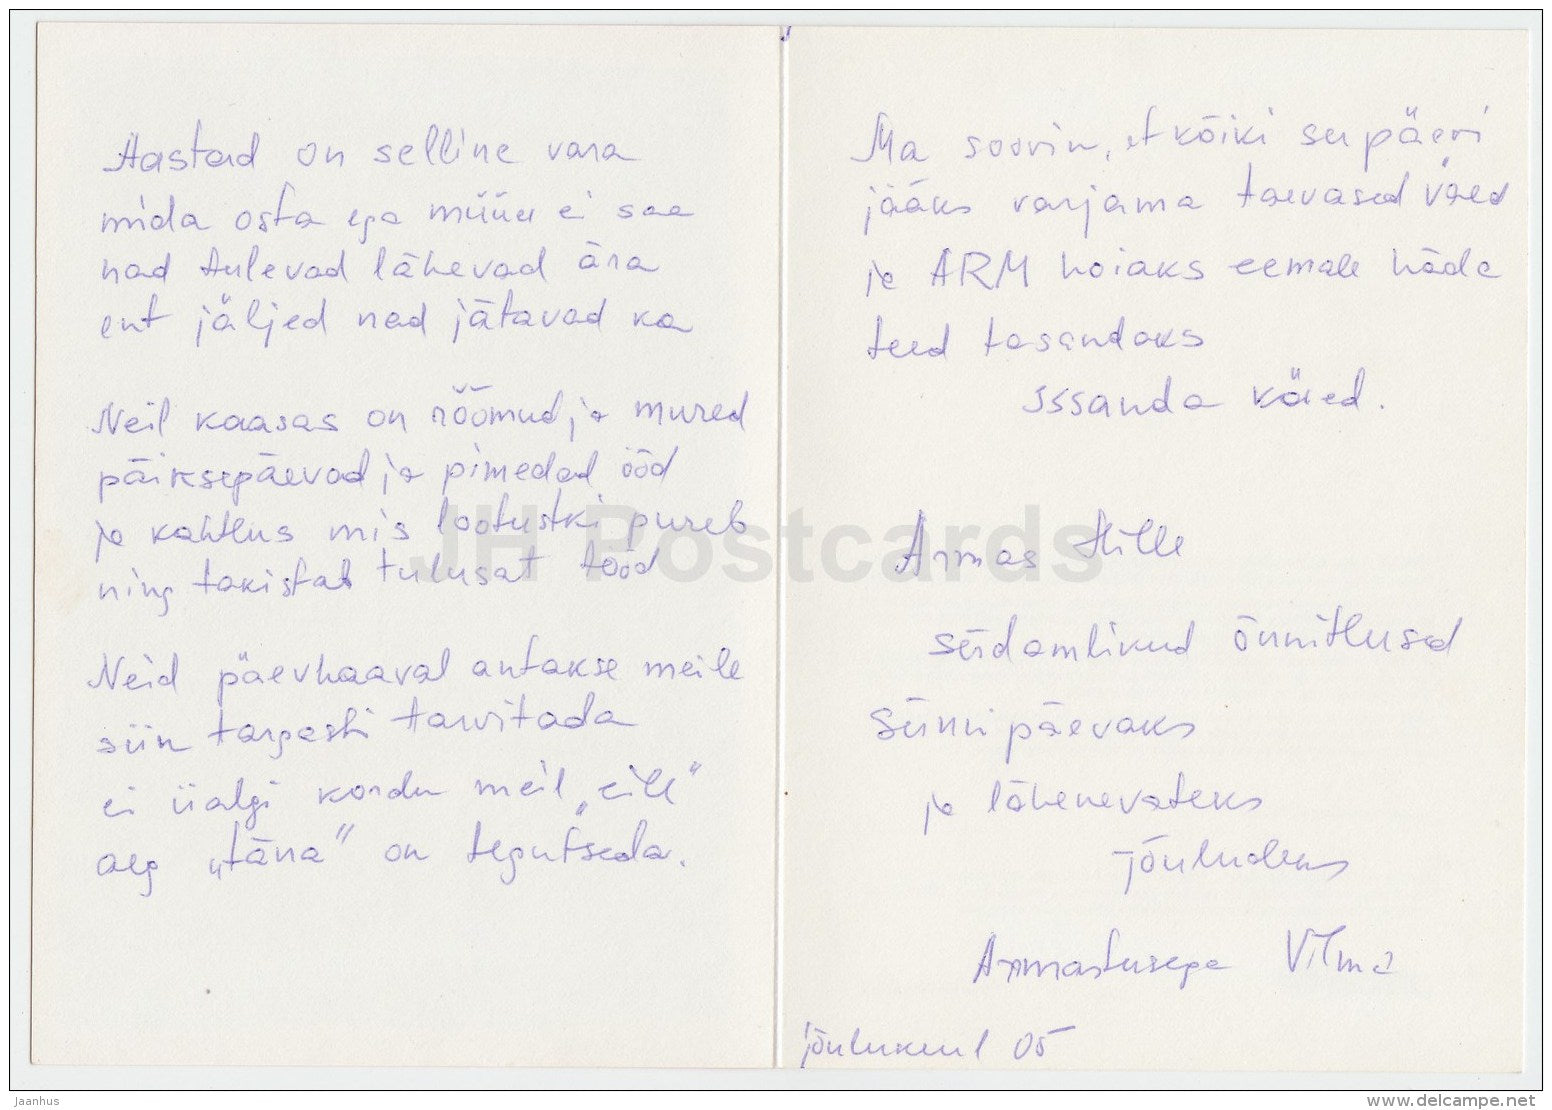 Aastad on selline vara
mida osta ega müüa ei saa
nad tulevad lähevad ära
ent jäljed nad jätavad ka
Neil kaasas on rõõmud ja mured
päiksepäevad ja pimedad ööd
ja kahtlus mis lootustki pureb
ning takistab tulusat tööd
Neid päevhaaval antakse meile
siin targasti tarvitada
ei iialgi kordu meil „eile"
aeg „täna" on tegutseda.
Ma soovin, et kõiki su päevi
jääks varjama taevased väed
ja ARM hoiaks eemale häda
teed tasandaks
Issanda käed.
Armas Hille
südamlikud õnnitlused
Sünnipäevaks
ja lähenevateks
jõuludeks
Armastusega Vilma
jõulukuul 05
JH Postcards
Jaanhus
www.delcampe.net